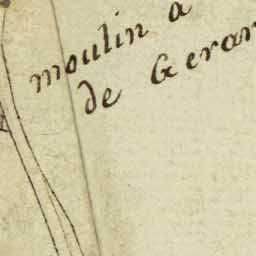 moulin a
de Gerar